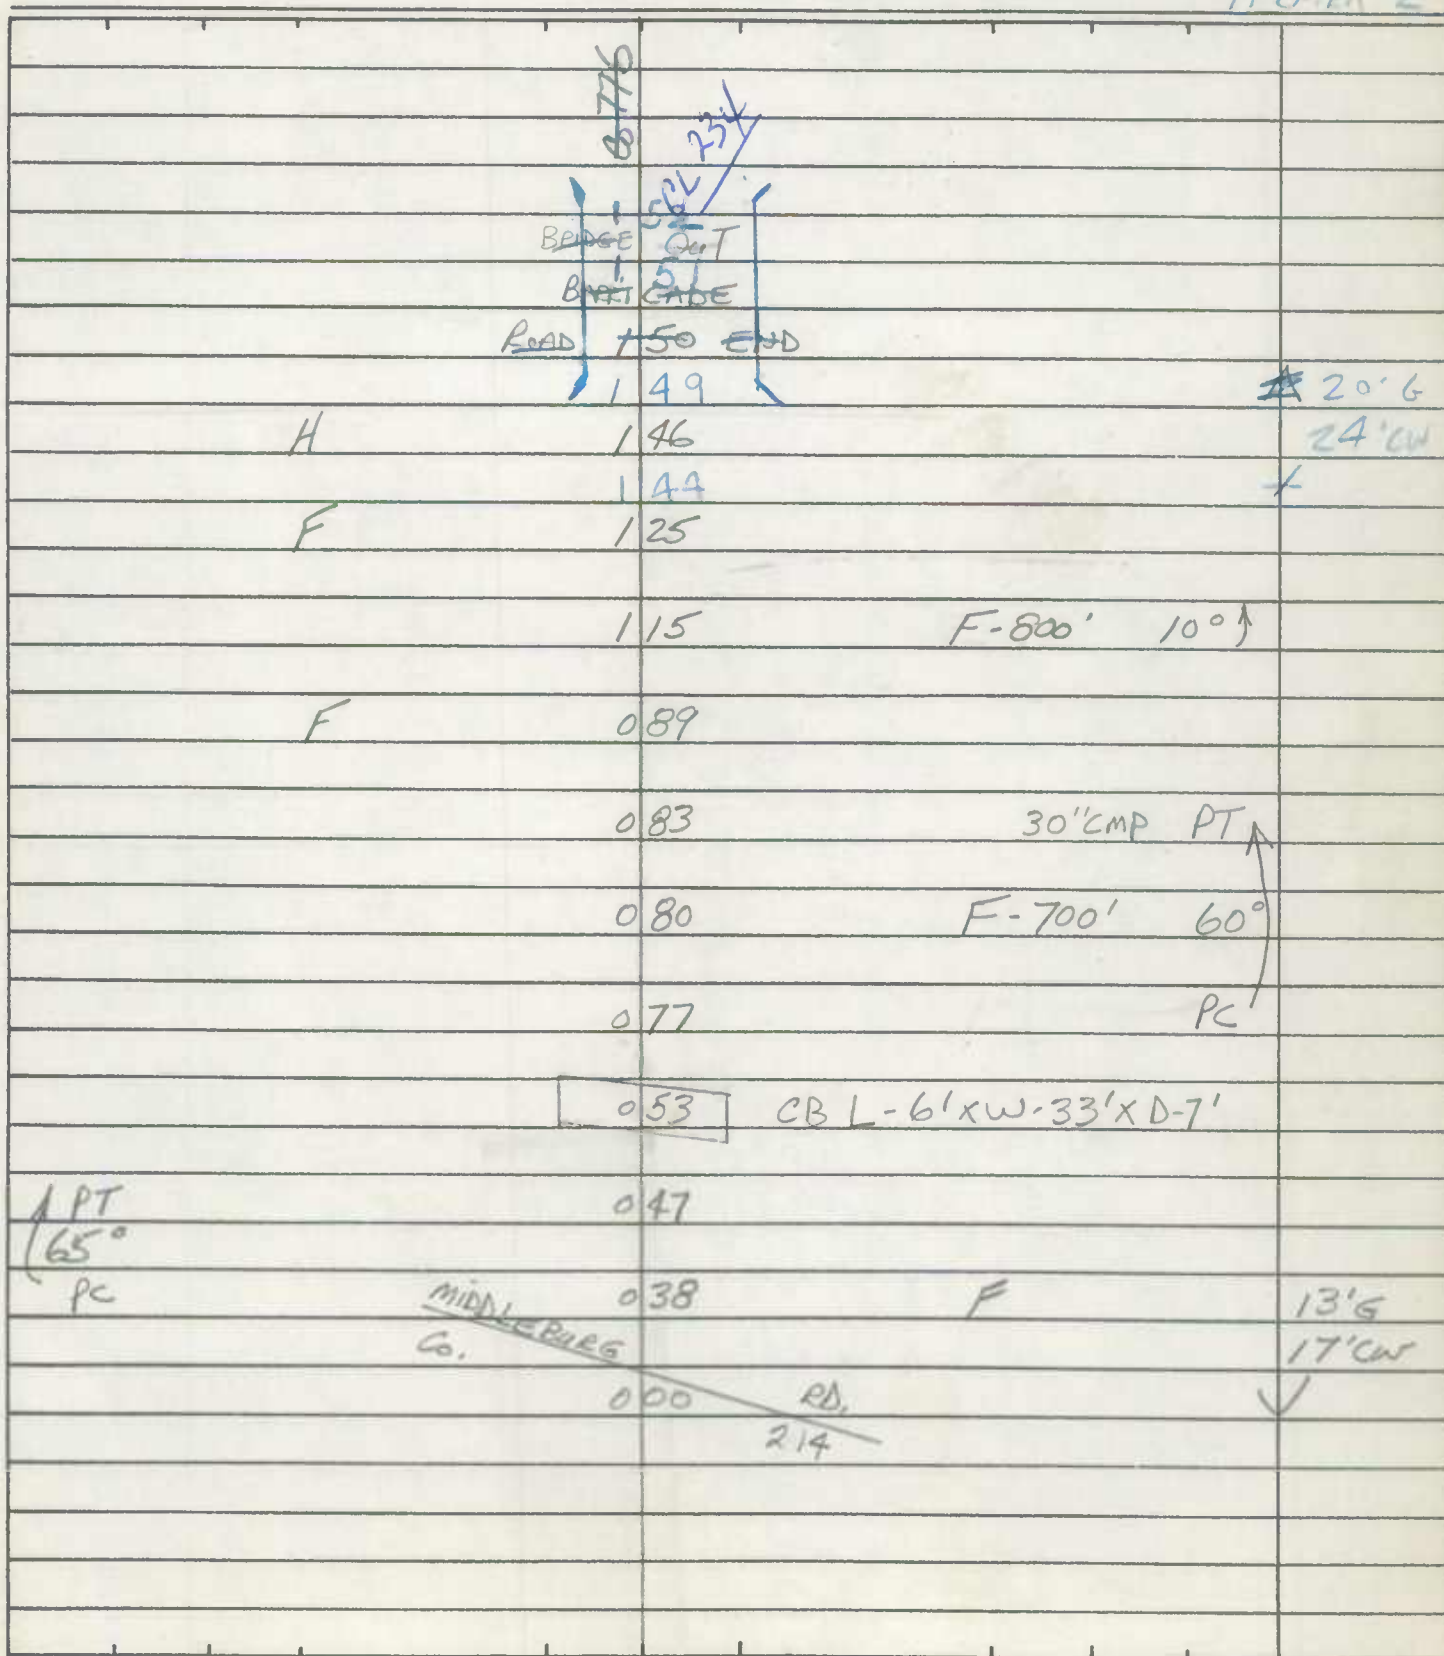 776
CL 234
1 52
BRIDGE OUT
1 51
BARRICADE
ROAD 1 50 END
1 49 20' G
H 1 46 24' CW
1 44
F 1 25
1 15 F-800' 10°
F 0 89
0 83 30" CMP PT
0 80 F-700' 60°
0 77 PC
0 53 CB L-6' X W-33' X D-7'
PT 0 47
65°
PC MIDDLEBURG 0 38 F 13' G
Co. 17' CW
0 00 RD.
214